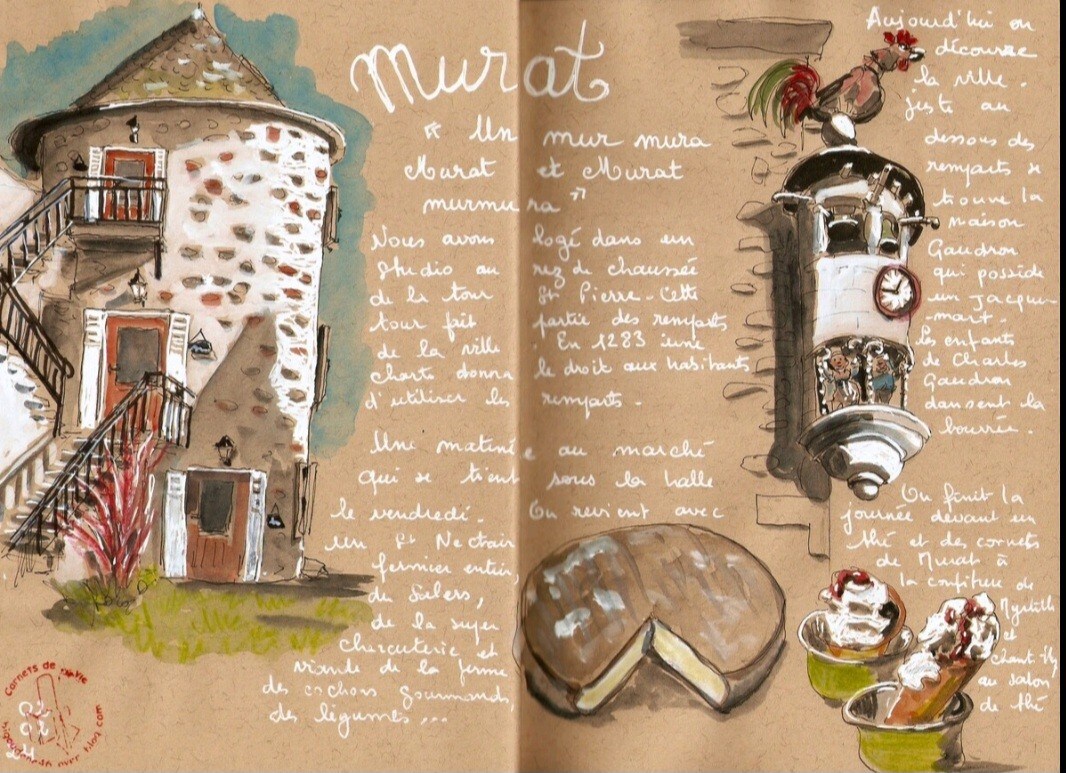 Murat
" Un mur mura
Murat et Murat
murmura "
Nous avons logé dans un
studio au rez de chaussée
de la tour St Pierre. Cette
tour fait partie des remparts
de la ville. En 1283 une
charte donna le droit aux habitants
d'utiliser les remparts.
Une matinée au marché
qui se tient sous la halle
le vendredi. On revient avec
un St Nectaire
fermier entier,
du Salers,
de la super
charcuterie et
viande de la ferme
des cochons gourmands,
des légumes ...
Aujourd'hui on
découvre
la ville.
juste au
dessous des
remparts se
trouve la
maison
Gaudron
qui possède
un jacque
mart.
les enfants
de Charles
Gaudron
dansent la
bourrée.
On finit la
journée devant un
thé et des cornets
de Murat à
la confiture de
Myrtille
et
chantilly
au salon
de thé
Carnets de vie